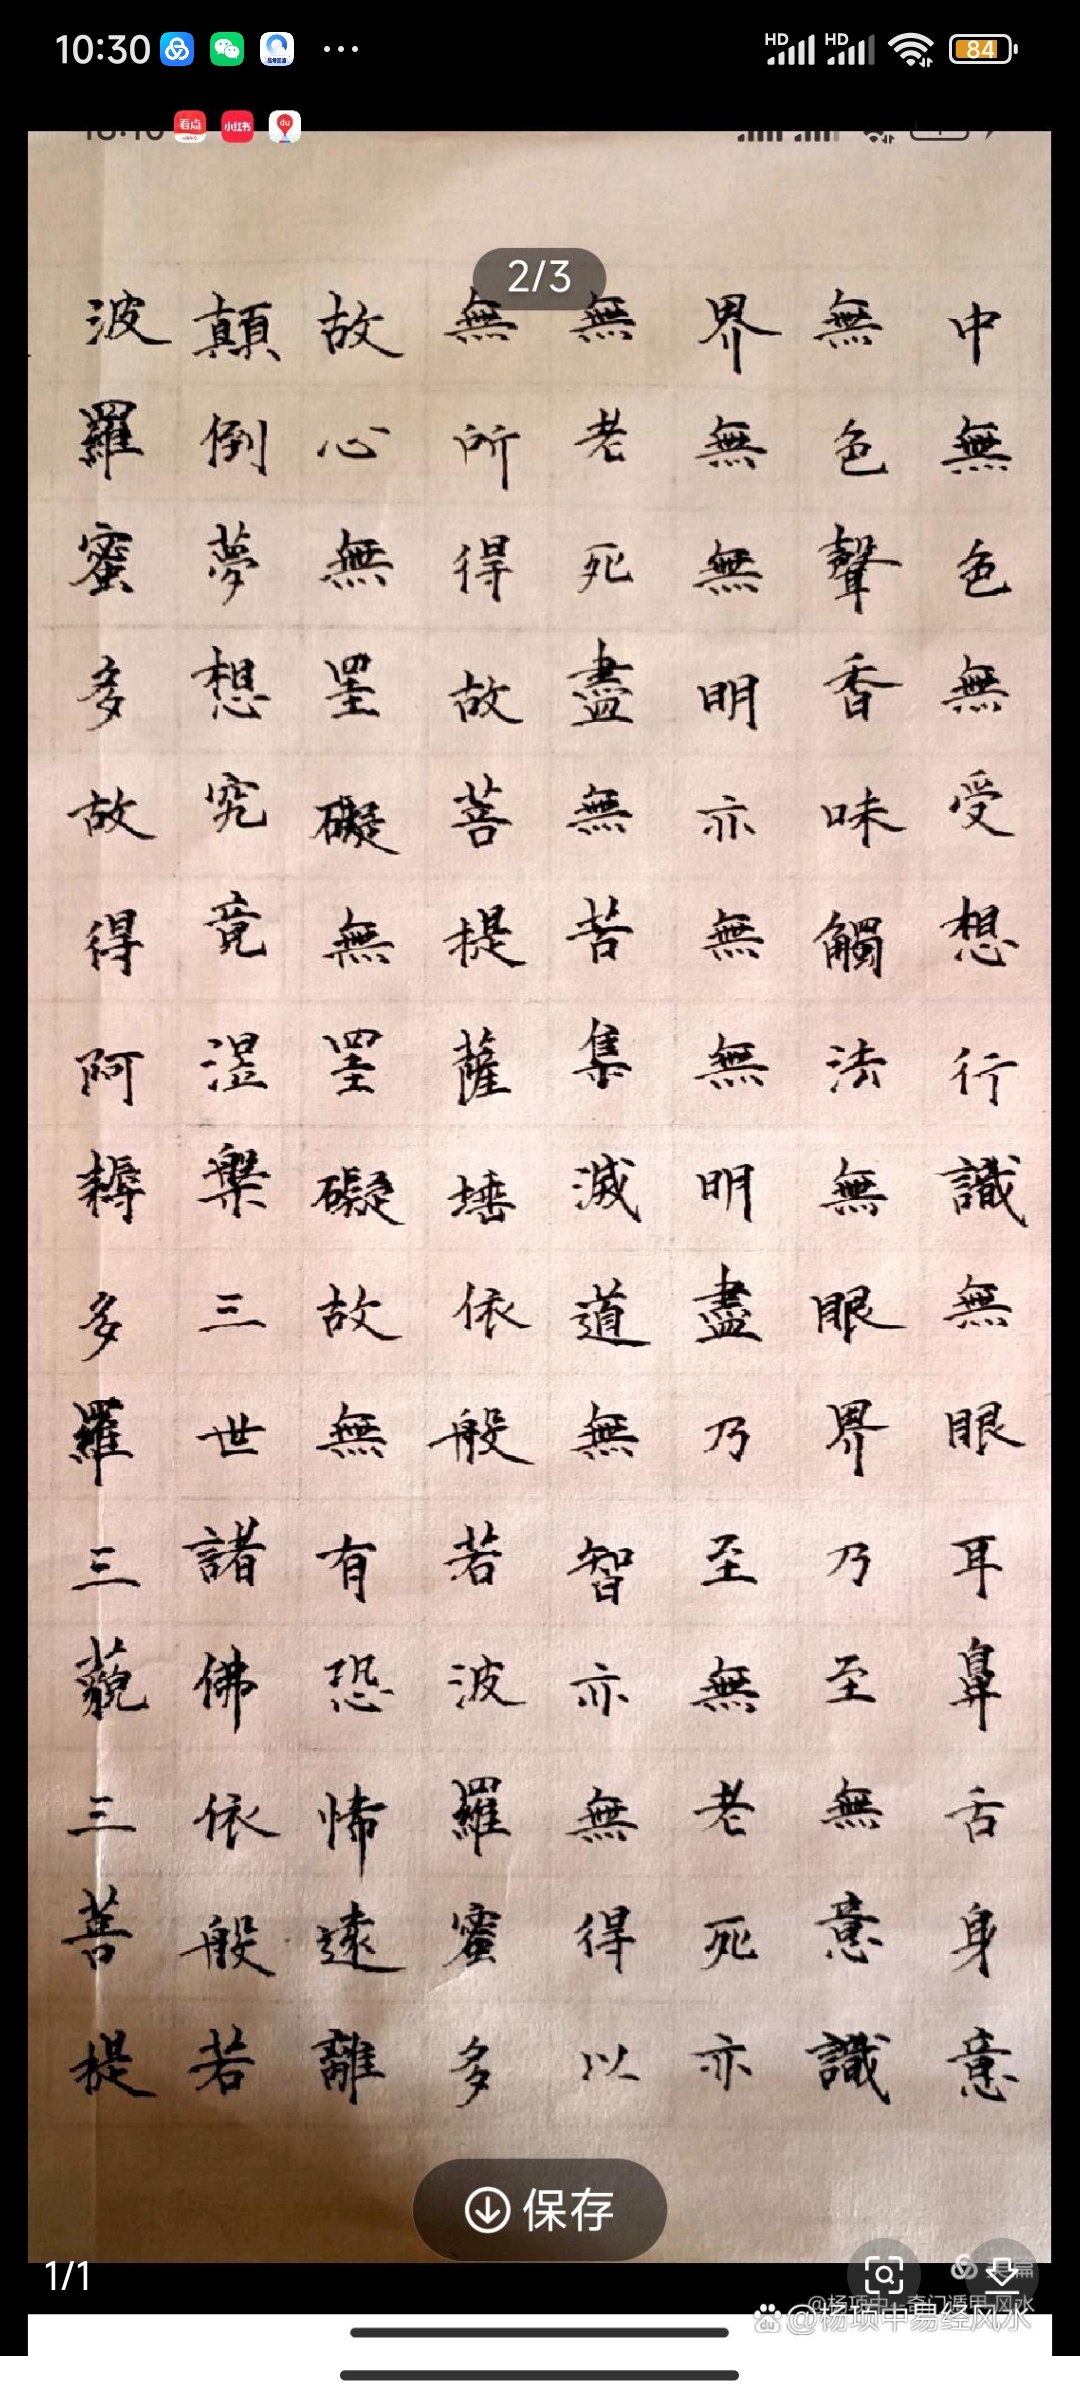 10:30
HD
HD
84
看点
小红书
du
2/3
中無色無受想行識無眼耳鼻舌身意
無色聲香味觸法無眼界乃至無意識
界無無明亦無無明盡乃至無老死亦
無老死盡無苦集滅道無智亦無得以
無所得故菩提薩埵依般若波羅蜜多
故心無罣礙無罣礙故無有恐怖遠離
顛倒夢想究竟涅槃三世諸佛依般若
波羅蜜多故得阿耨多羅三藐三菩提
保存
1/1
@杨项中--奇门遁甲.风水
du
@杨项中易经风水